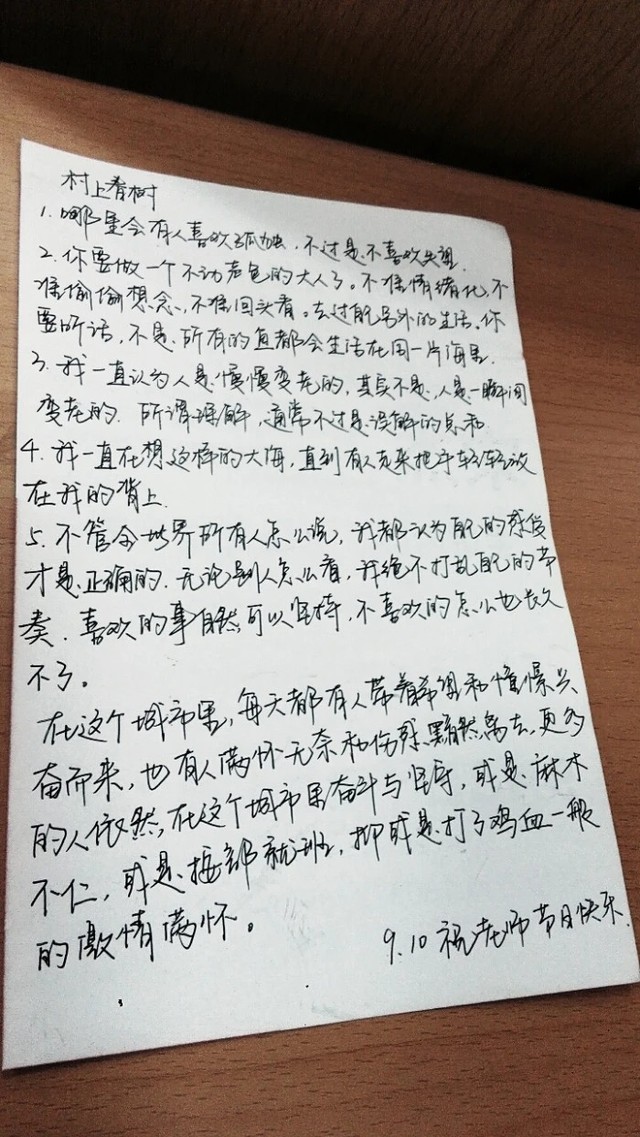 村上春树
1.哪里会有人喜欢孤独,不过是不喜欢失望.
2.你要做一个不动声色的大人了。不准情绪化,不
准偷偷想念,不准回头看。去过自己另外的生活.你
要听话,不是所有的鱼都会生活在同一片海里.
3.我一直认为人是慢慢变老的,其实不是,人是一瞬间
变老的.所谓理解,通常不过是误解的总和
4.我一直在想这样的大海,直到有人走来把手轻轻放
在我的背上.
5.不管全世界所有人怎么说,我都认为自己的感受
才是正确的.无论别人怎么看,我绝不打乱自己的节
奏.喜欢的事自然可以坚持,不喜欢的怎么也长久
不了。
在这个城市里,每天都有人带着希望和憧憬兴
奋而来,也有人满怀无奈和伤感黯然离去,更多
的人依然在这个城市里奋斗与坚守,或是麻木
不仁,或是按部就班,抑或是打了鸡血一般
的激情满怀。
9.10祝老师节日快乐.